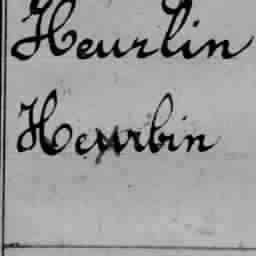 Heurlin
Heurbin